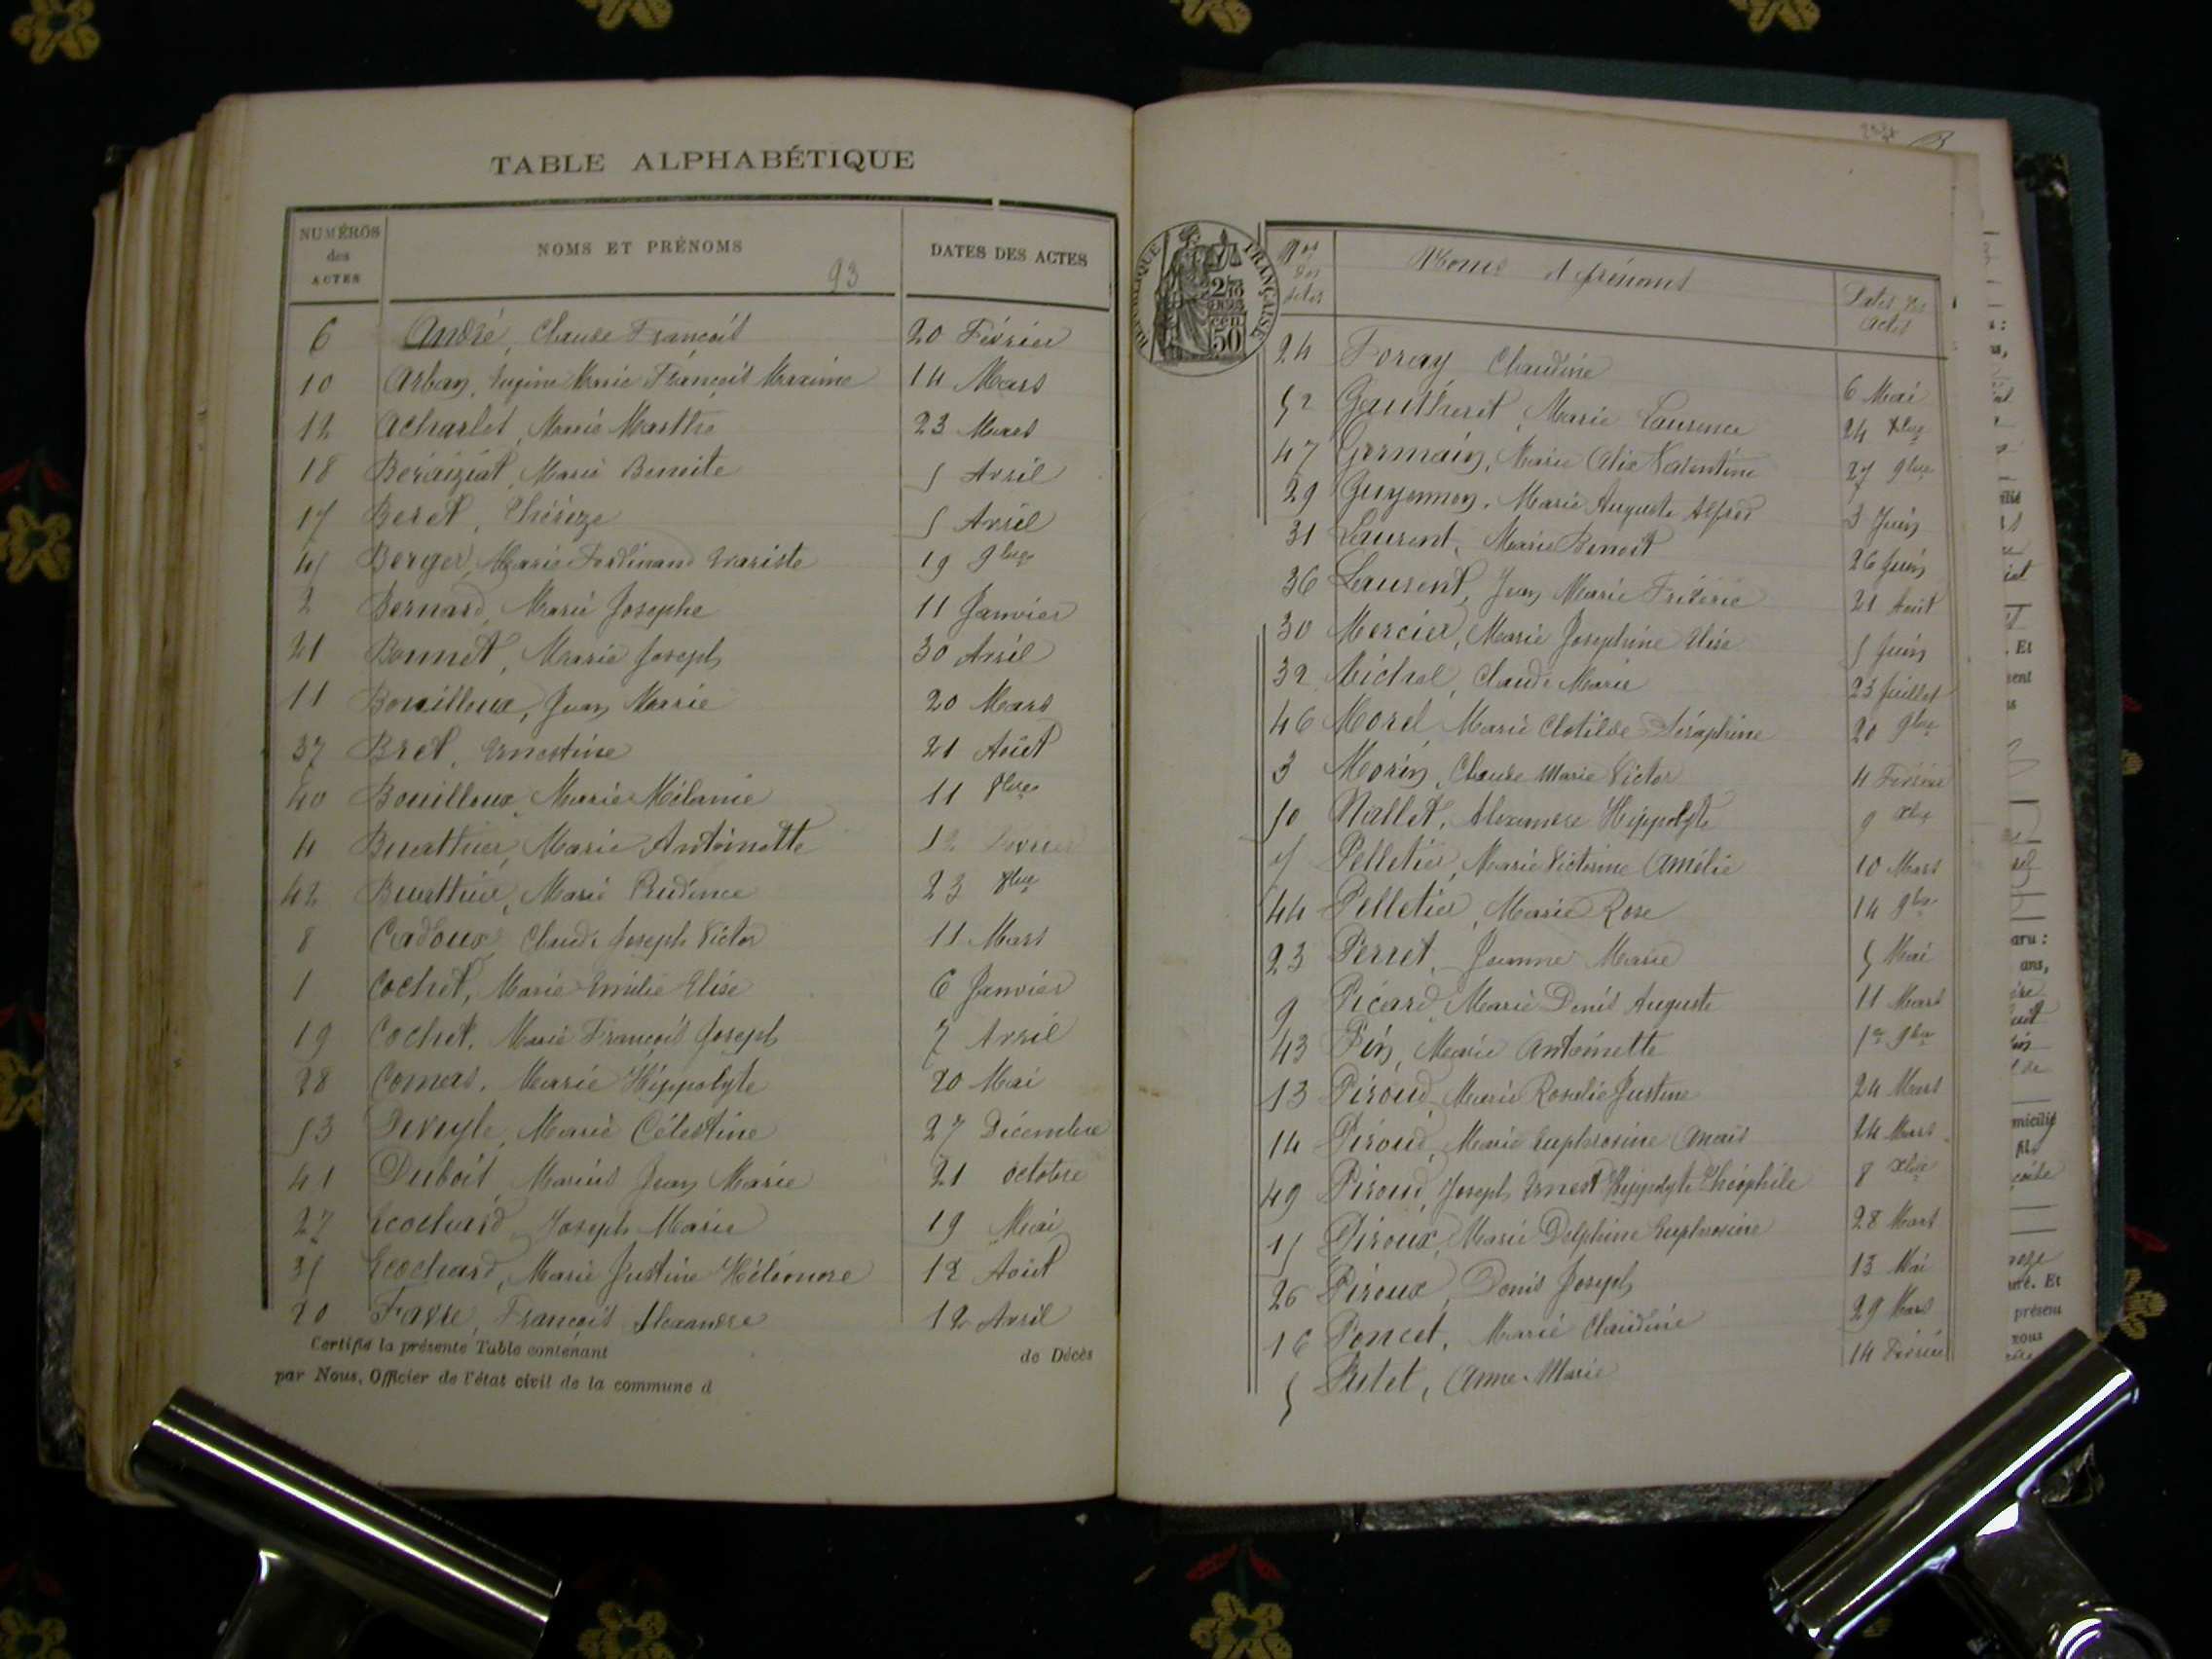 TABLE ALPHABÉTIQUE
NUMÉROS des ACTES NOMS ET PRÉNOMS DATES DES ACTES
93
6 André, Claude François 20 Février
10 Arban, Eugène Marie François Maxime 14 Mars
12 Acharlet, Marie Marthe 23 Mars
18 Béraiziat, Marie Benoite 5 Avril
17 Beret, Thérèze 5 Avril
45 Berger, Marie Ferdinand Evariste 19 9bre
2 Bernard, Marie Josephe 11 Janvier
21 Bonnet, Marie Joseph 30 Avril
11 Bouilloux, Jean Marie 20 Mars
37 Bret, Ernestine 21 Août
40 Bouilloux, Marie Mélanie 11 8bre
4 Buatthier, Marie Antoinette 12
42 Buatthier, Marie Prudence 23 8bre
8 Cadoux, Claude Joseph Victor 11 Mars
1 Cochet, Marie Emélie Elise 6 Janvier
19 Cochet, Marie François Joseph 7 Avril
28 Comas, Marie Hippolyte 20 Mai
53 Deveyle, Marie Célestine 27 Décembre
41 Duboit Marius Jean Marie 21 octobre
27 Ecochard, Joseph Marie 19 Mai
35 Ecochard, Marie Justine Héléonore 12 Août
20 Favre, François Alexandre 12 Avril
Certifié la présente Table contenant de Décès
par Nous, Officier de l'état civil de la commune d
RÉPUBLIQUE FRANÇAISE
50
Nos des actes Noms et prénoms Dates des actes
24 Foray Claudine 6 Mai
52 Gautheret, Marie Laurence 24 Xbre
47 Germain, Marie Alix Valentine 27 9bre
29 Guyennon, Marie Auguste Alfred 3 Juin
31 Laurent, Marie Benoit 26 Juin
36 Laurent, Jean Marie Frédéric 21 Août
30 Mercier, Marie Joséphine Elise 5 Juin
32 Michel, Claude Marie 23 Juillet
46 Morel Marie Clotilde Séraphine 20 9bre
3 Morin, Claude Marie Victor 4 Février
50 Nallet, Alexandre Hippolyte 9 Xbre
7 Pelletier, Marie Victorine Amélie 10 Mars
44 Pelletier, Marie Rose 14 9bre
23 Perret, Jeanne Marie 5 Mai
9 Picard, Marie Denis Auguste 11 Mars
43 Pin, Marie Antoinette 1er 9bre
13 Piroud, Marie Rosalie Justine 24 Mars
14 Piroud, Marie Euphrosine Anaïs 24 Mars
49 Piroud, Joseph Ernest Hippolyte Théophile 8 Xbre
15 Piroux, Marie Delphine Euphrosine 28 Mars
26 Piroux, Denis Joseph 13 Mai
16 Poncet, Marie Claudine 29 Mars
5 Putet, Anne Marie 14 Février